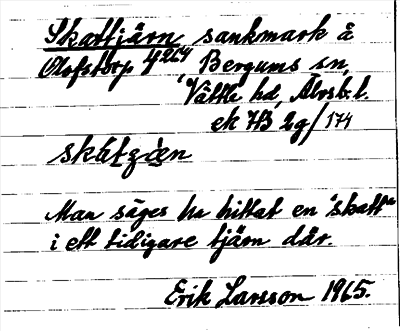 Skattjärn, sankmark å
Olofstorp 4²⁶⁴, Bergums sn,
Vättle hd, Älvsb. l.
ek 7B 2g/174
skát̠z̠än
Man säges ha hittat en "skatt"
i ett tidigare tjärn där.
Erik Larsson 1965.